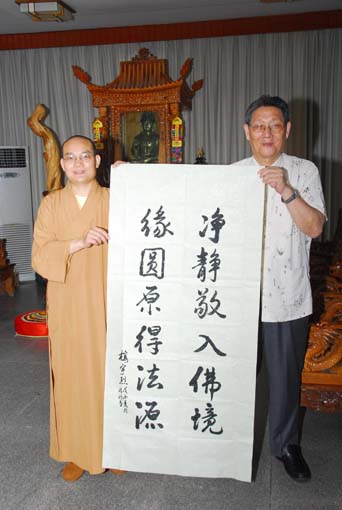 净静敬入佛境
缘圆原得法源
楼宇烈